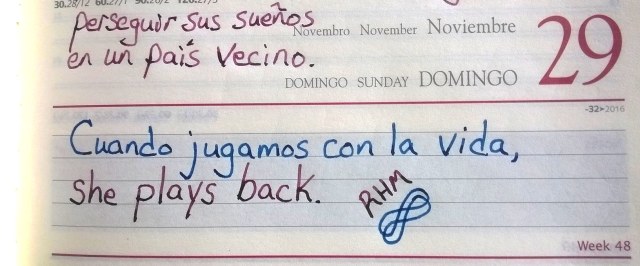 perseguir sus sueños
en un país vecino.
Novembro November Noviembre
29
DOMINGO SUNDAY DOMINGO
-32▸2016
Cuando jugamos con la vida,
she plays back.
RHM
Week 48